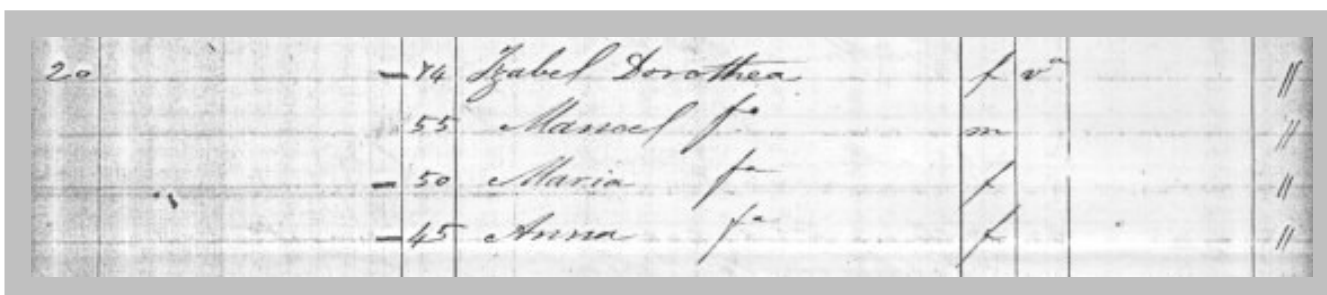 20 — 74 Izabel Dorothea f vª "
55 Manoel fº m "
— 50 Maria fª f "
— 45 Anna fª f "